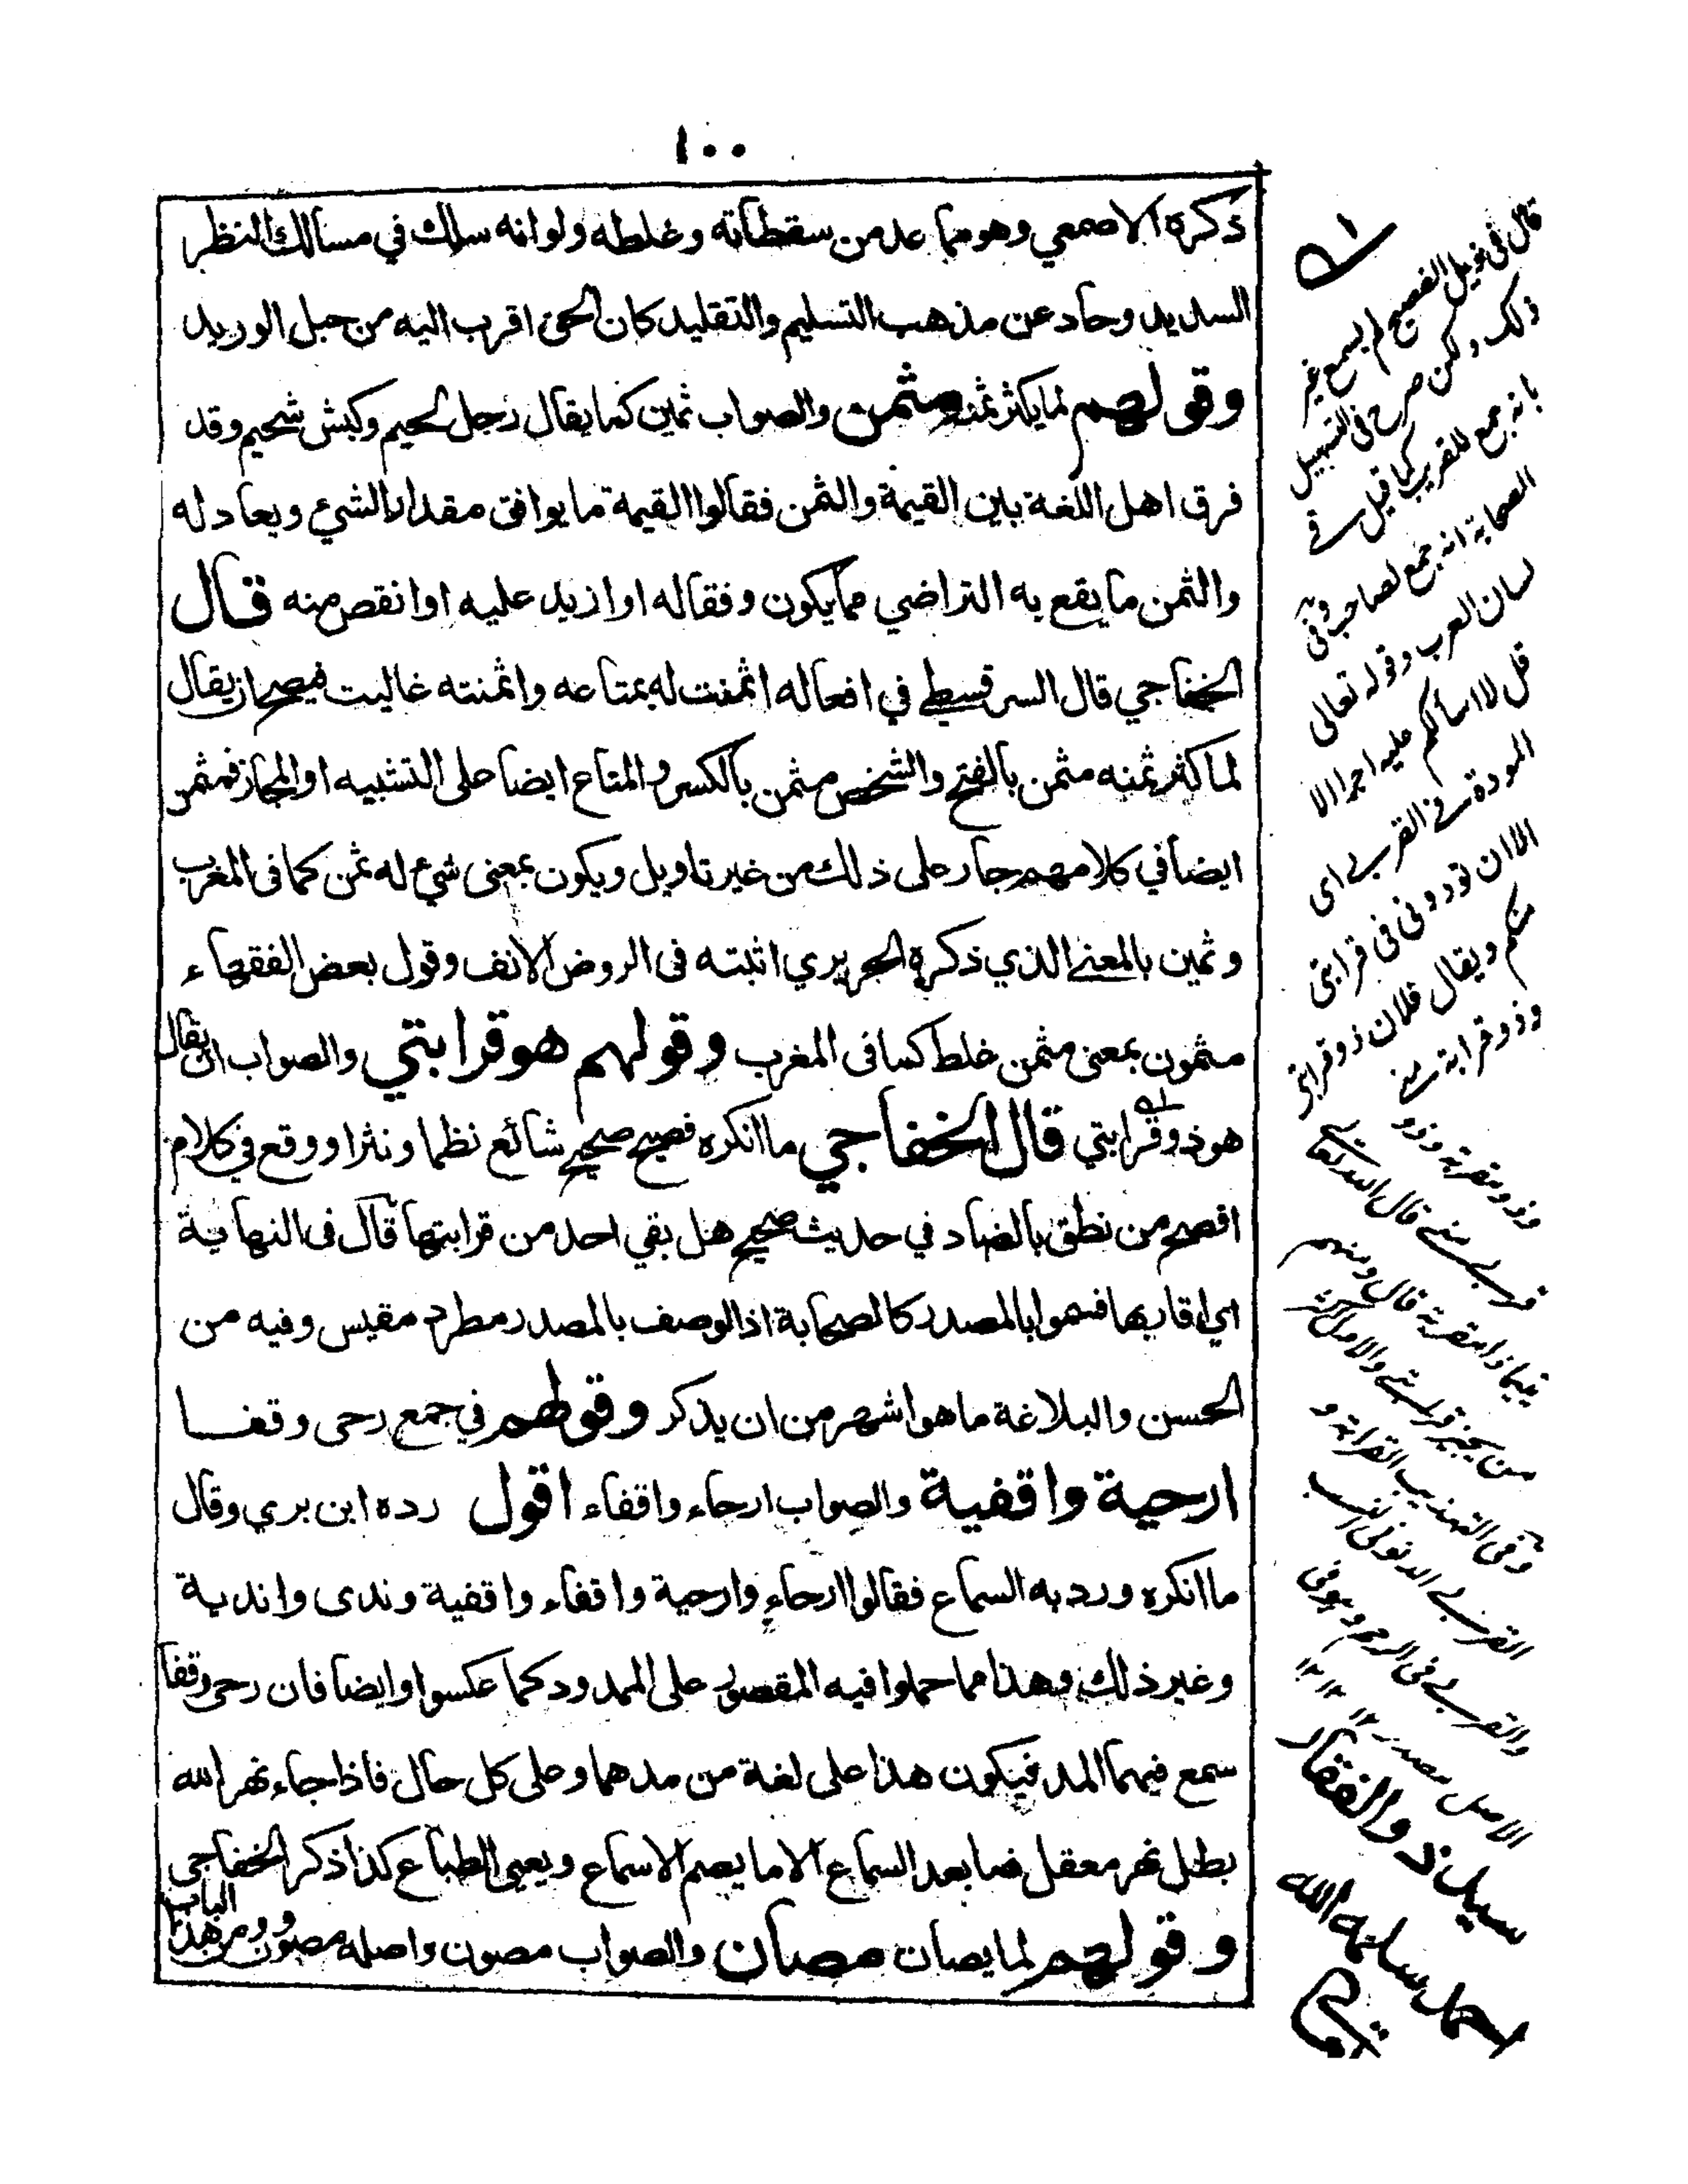 ١٠٠
ذكره الاصمعي وهو مما عد من سقطاته وغلطه ولو انه سلك في مسالك النظر
السديد وحاد عن مذهب التسليم والتقليد كان الحق اقرب اليه من حبل الوريد
وقولهم لما يكثر ثمنه مثمن والصواب ثمين كما يقال رجل لحيم وكبش شحيم وقد
فرق اهل اللغة بين القيمة والثمن فقالوا القيمة ما يوافق مقدار الشيء ويعادله
والثمن ما يقع به التراضي مما يكون وفقا له او ازيد عليه او انقص منه قال
الخفاجي قال السرقسطي في افعاله اثمنت له بمتاعه واثمنته غاليت فيصح ان يقال
لما كثر ثمنه مثمن بالفتح والشخص مثمن بالكسر والمتاع ايضا على التشبيه او المجاز فمثمن
ايضا في كلامهم جار على ذلك من غير تاويل ويكون بمعنى شيء له ثمن كما فى المغرب
وثمين بالمعنے الذي ذكره الحريري اثبته فى الروض الانف وقول بعض الفقهاء
مثمون بمعنى مثمن غلط كما فى المغرب وقولهم هو قرابتي والصواب ان يقال
هو ذو قرابتي قال الخفاجي ما انكره فصيح صحيح شائع نظما ونثرا ووقع في كلام
افصح من نطق بالضاد في حديث صحيح هل بقي احد من قرابتها قال فى النهاية
اي اقاربها فسموا بالمصدر كالصحابة اذ الوصف بالمصدر مطرد مقيس وفيه من
الحسن والبلاغة ما هو اشهر من ان يذكر وقولهم في جمع رحى وقفا
ارحية واقفية والصواب ارحاء واقفاء اقول رده ابن بري وقال
ما انكره ورد به السماع فقالوا ارحاء وارحية واقفاء واقفية وندى واندية
وغير ذلك وهذا مما حملوا فيه المقصور على الممدود كما عكسوا وايضا فان رحى وقفا
سمع فيهما المد فيكون هذا على لغة من مدهما وعلى كل حال فاذا جاء نهر الله
بطل نهر معقل فما بعد السماع الا ما يصم الاسماع ويعيى الطباع كذا ذكر الخفاجي
وقولهم لما يصان مصان والصواب مصون واصله مصوون ومن هذا الباب
قال فى ذيل الفصيح لم يسمع غير
ذلك ولكن صرح فى التسهيل
بانه جمع للقريب كما قيل فے
الصحابة انه جمع لصاحب وفى
لسان العرب وقوله تعالى
قل لا اسألكم عليه اجرا الا
المودة فے القربے اى
الا ان تودونى فى قرابتى
منكم ويقال فلان ذو قرابتى
وذو قرابة منے
وذو مقربة وذو
قربے منے قال الله تعالے
يتيما ذا مقربة قال ومنهم
من يجيز قرابتے والاول اكثر
وفى التهذيب القرابة و
القربے الدنو فى النسب
والقربے فى الرحم وهو فى
الاصل مصدر ١٢
سيد ذو الفقار
احمد سلمه الله